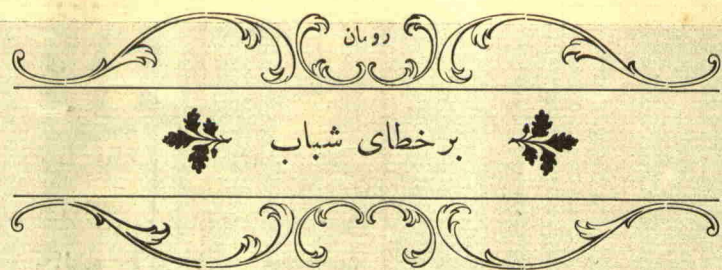 رومان
بر خطای شباب